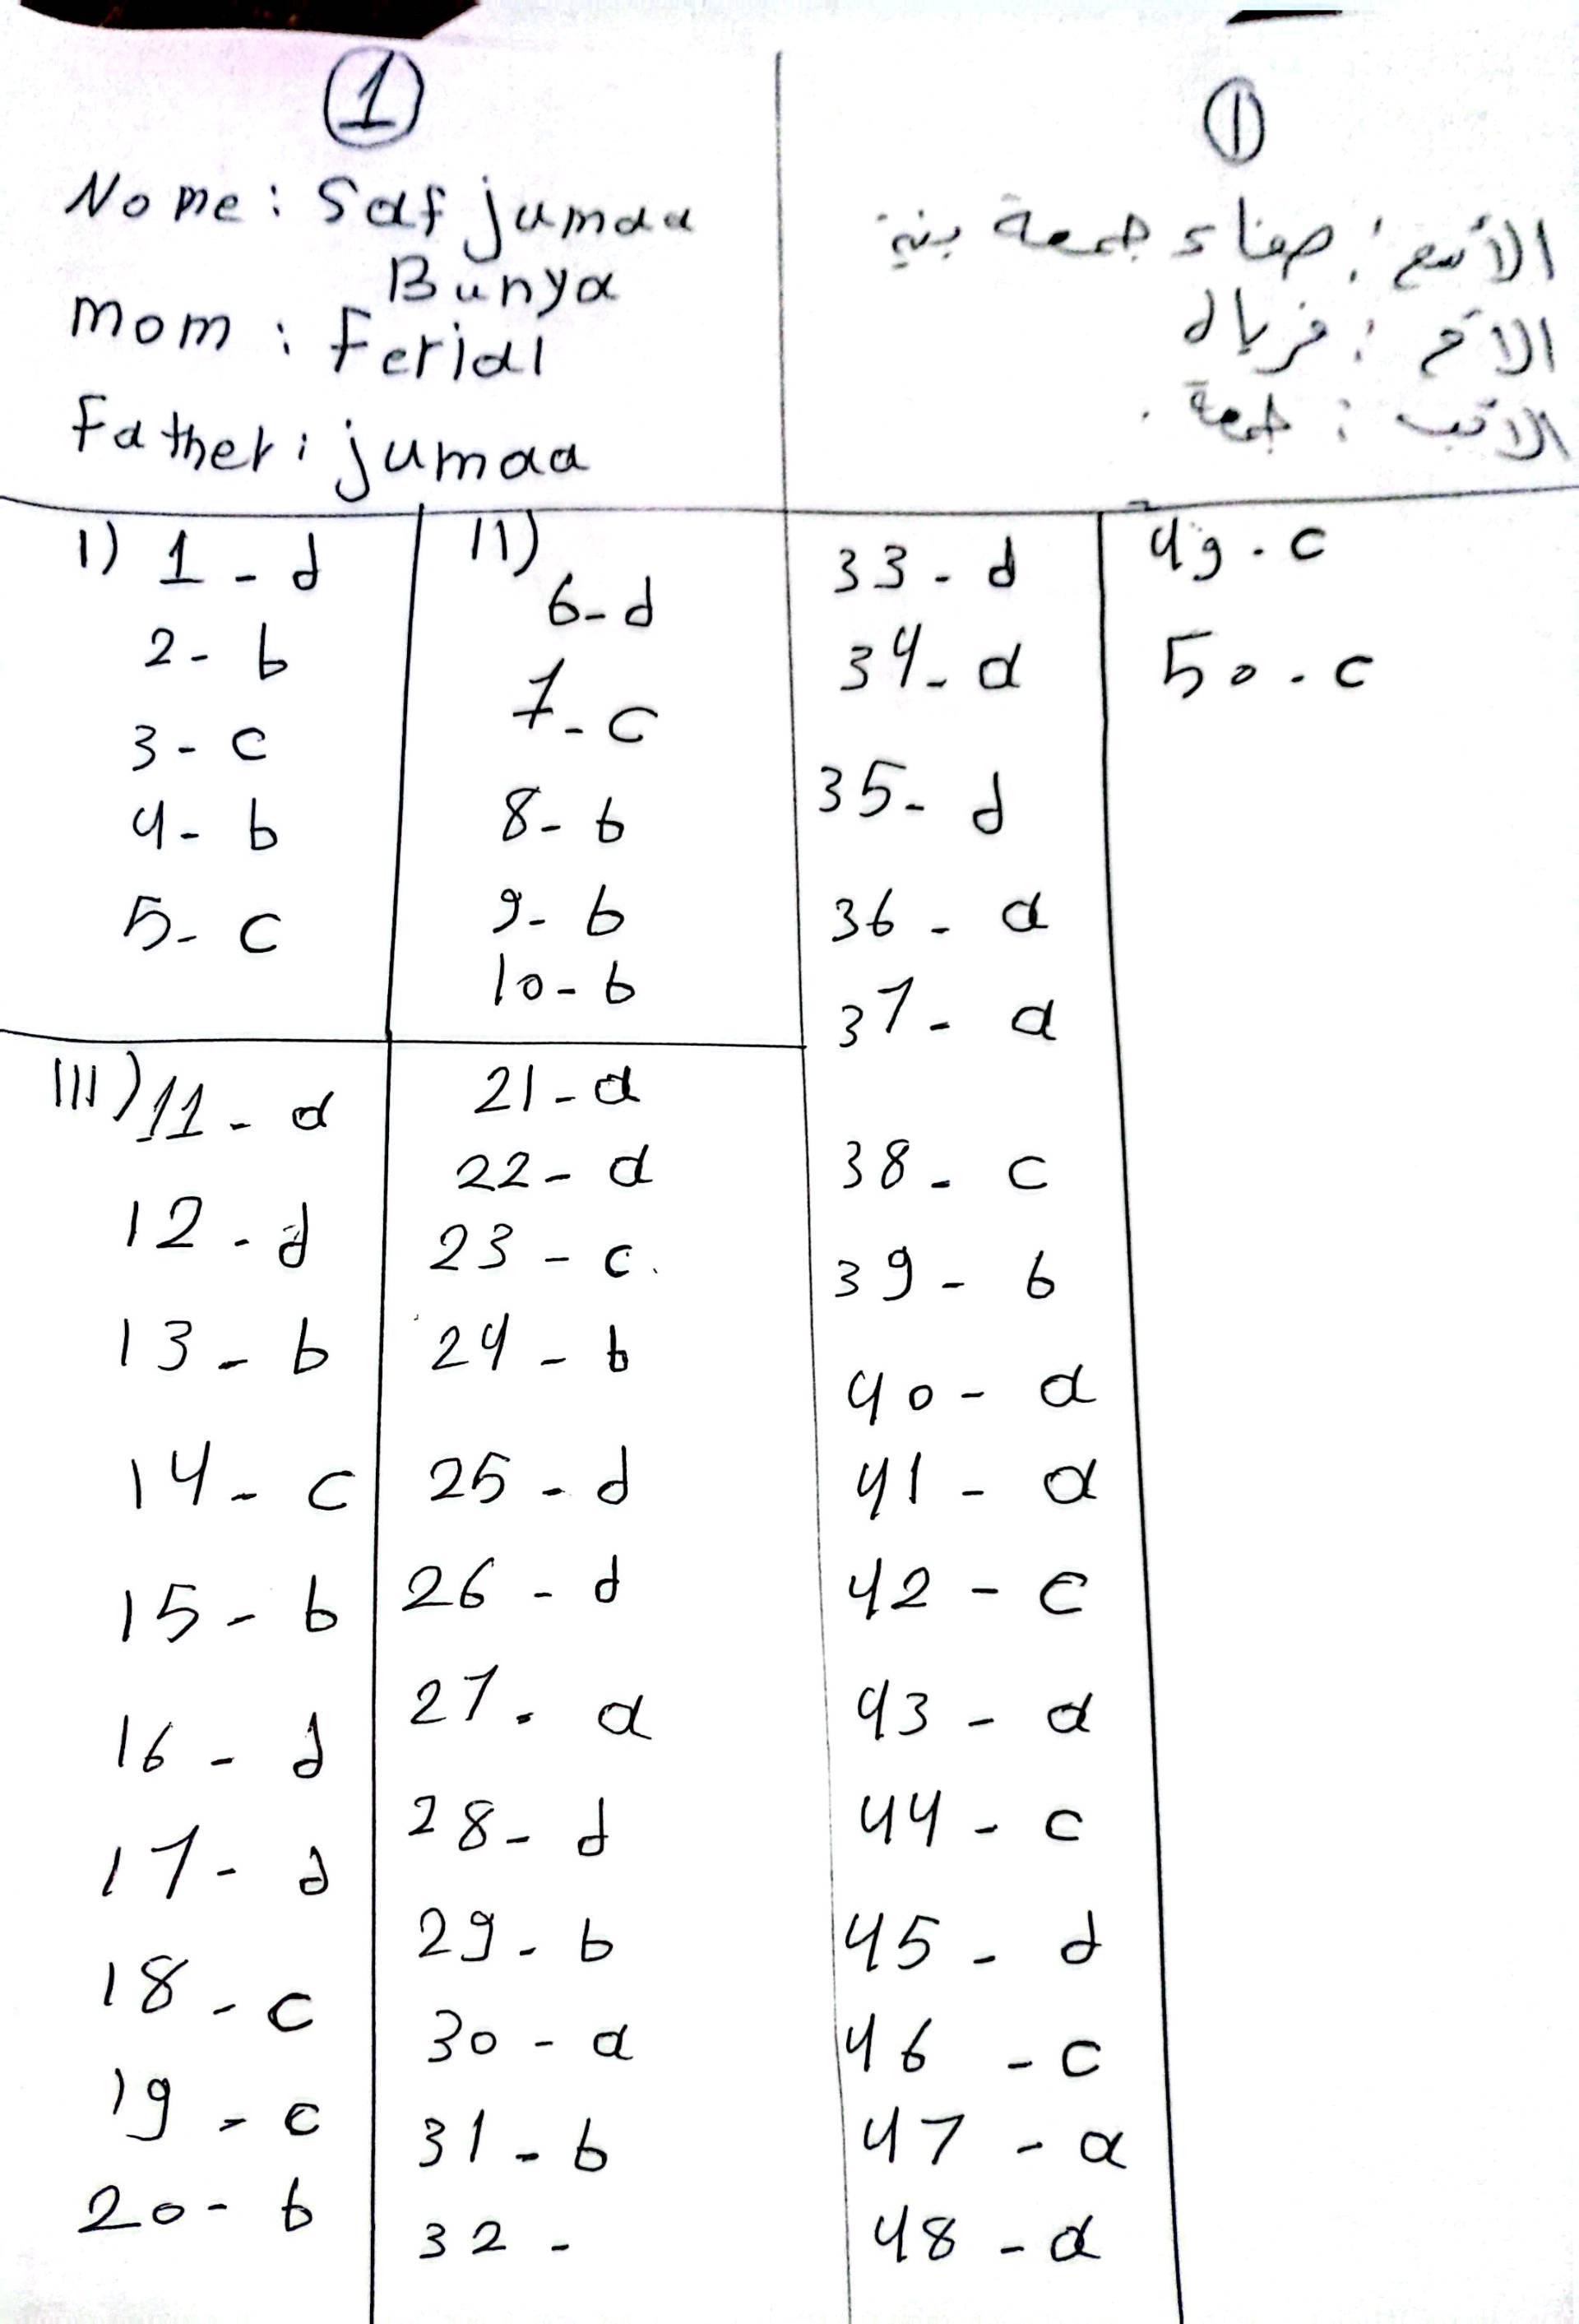 1
Nome: Saf jumaa
Bunya
Mom: Ferial
Father: jumaa
1
الأسم: صفاء جمعة بنية
الأم: فريال
الأب: جمعة.
I) 1 - d
2 - b
3 - c
4 - b
5 - c
II)
6 - d
7 - c
8 - b
9 - b
10 - b
III) 11 - a
12 - d
13 - b
14 - c
15 - b
16 - d
17 - d
18 - c
19 - c
20 - b
21 - a
22 - a
23 - c.
24 - b
25 - d
26 - d
27 - a
28 - d
29 - b
30 - a
31 - b
32 -
33 - d
34 - a
35 - d
36 - a
37 - a
38 - c
39 - b
40 - a
41 - a
42 - c
43 - a
44 - c
45 - d
46 - c
47 - a
48 - a
49 - c
50 - c